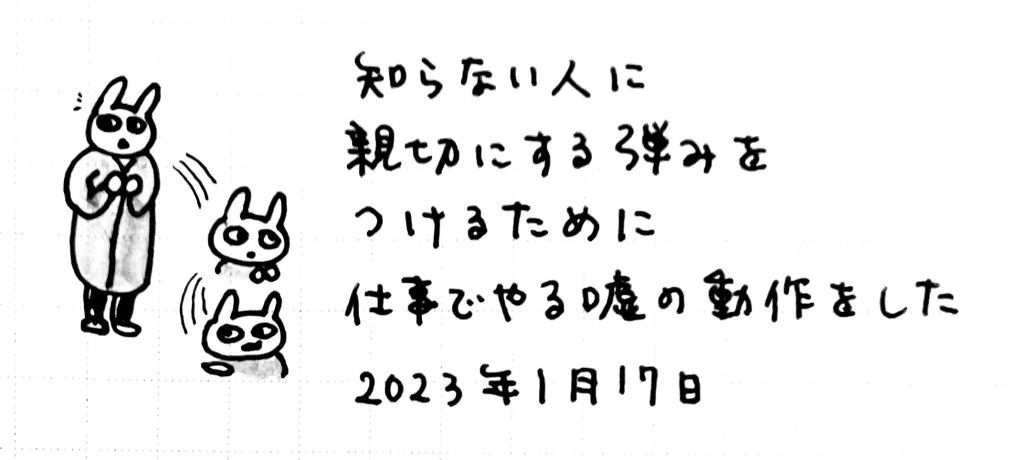 知らない人に
親切にする弾みを
つけるために
仕事でやる嘘の動作をした
2023年1月17日